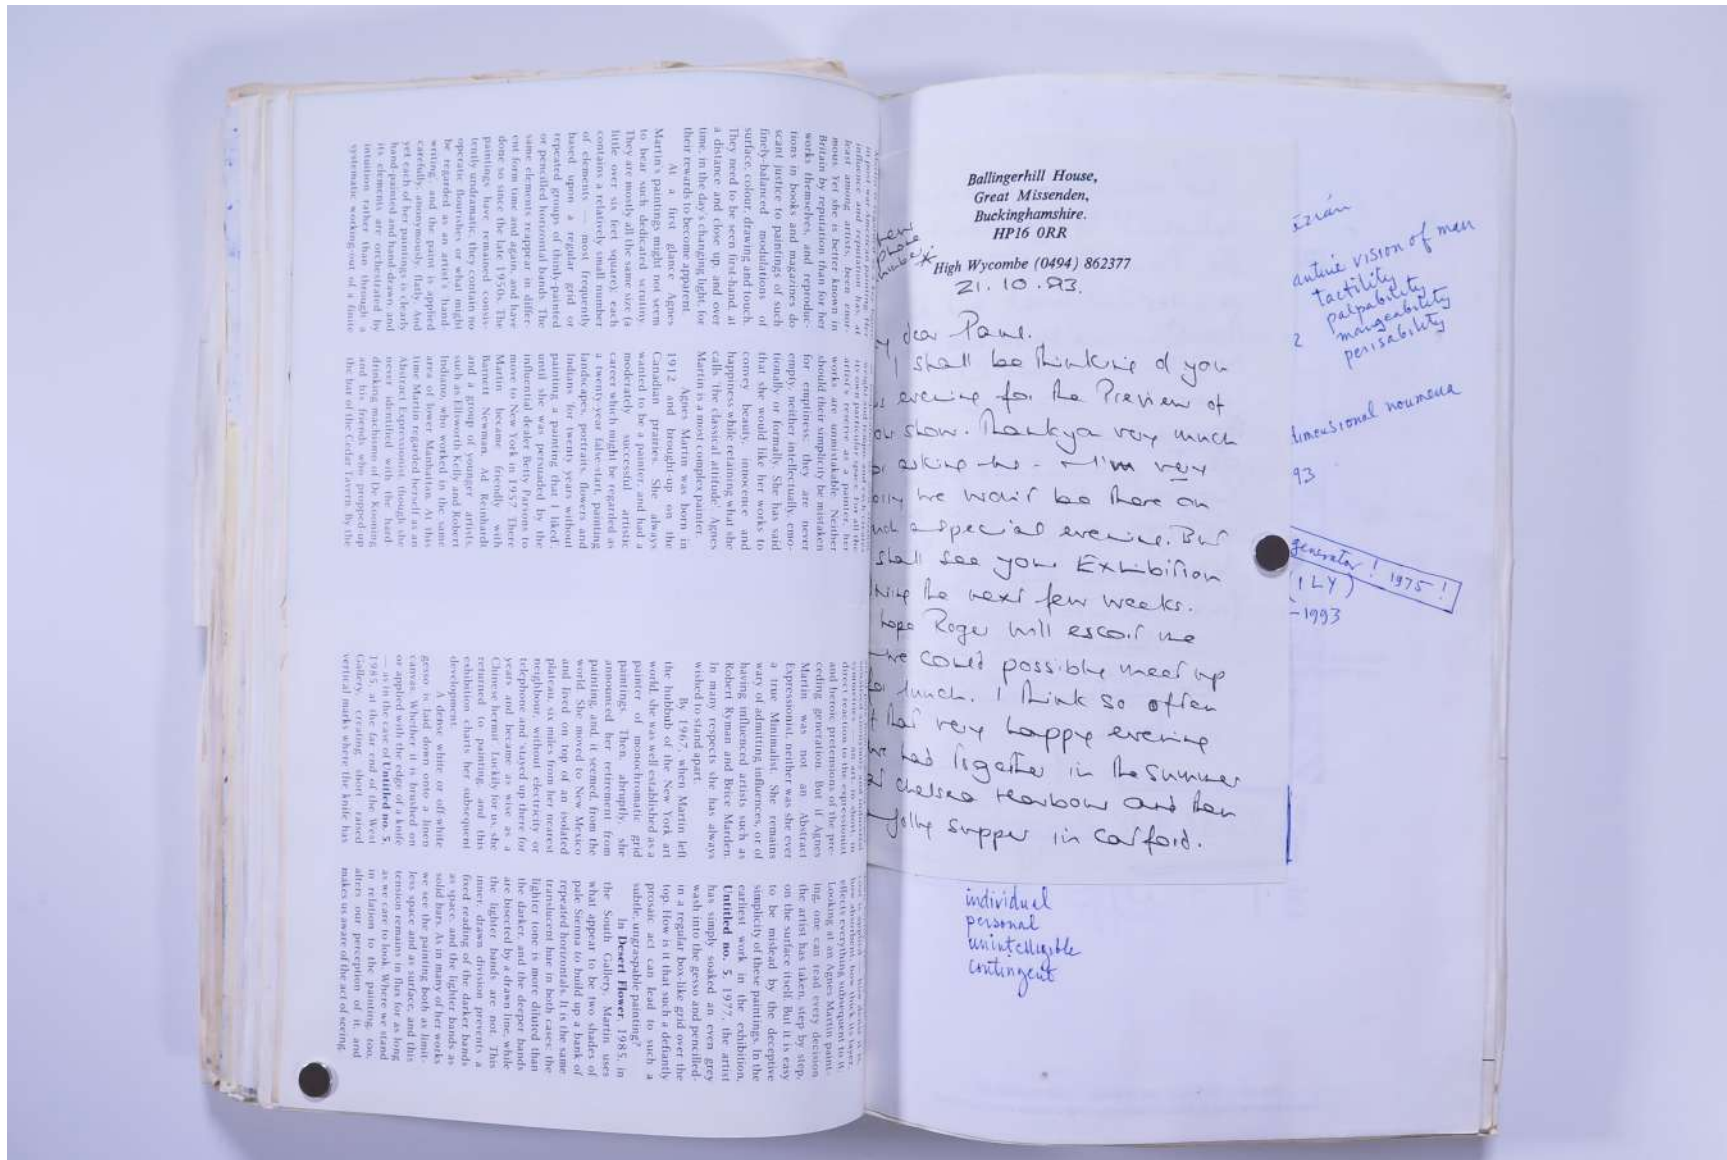 in post-war American painting. Her
influence and reputation has, at
least among artists, been enor-
mous. Yet she is better known in
Britain by reputation than for her
works themselves, and reproduc-
tions in books and magazines do
scant justice to paintings of such
finely-balanced modulations of
surface, colour, drawing and touch.
They need to be seen first-hand, at
a distance and close up, and over
time, in the day's changing light, for
their rewards to become apparent.
At a first glance Agnes
Martin's paintings might not seem
to bear such dedicated scrutiny.
They are mostly all the same size (a
little over six feet square), each
contains a relatively small number
of elements — most frequently
based upon a regular grid or
repeated groups of thinly-painted
or pencilled horizontal bands. The
same elements reappear in differ-
ent form time and again, and have
done so since the late 1950s. The
paintings have remained consis-
tently undramatic; they contain no
operatic flourishes or what might
be regarded as an artist's hand-
writing, and the paint is applied
carefully, anonymously, flatly. And
yet each of her paintings is clearly
hand-painted and hand-drawn, and
its elements are orchestrated by
intuition rather than through a
systematic working-out of a finite
its own particular space. For all the
artist's reserve as a painter, her
works are unmistakable. Neither
should their simplicity be mistaken
for emptiness; they are never
empty, neither intellectually, emo-
tionally or formally. She has said
that she would like her works to
convey beauty, innocence and
happiness while retaining what she
calls 'the classical attitude'. Agnes
Martin is a most complex painter.
Agnes Martin was born in
1912 and brought-up on the
Canadian prairies. She always
wanted to be a painter, and had a
moderately successful artistic
career which might be regarded as
a twenty-year false-start, painting
landscapes, portraits, flowers and
Indians 'for twenty years without
painting a painting that I liked',
until she was persuaded by the
influential dealer Betty Parsons to
move to New York in 1957. There
Martin became friendly with
Barnett Newman, Ad Reinhardt
and a group of younger artists,
such as Ellsworth Kelly and Robert
Indiana, who worked in the same
area of lower Manhattan. At this
time Martin regarded herself as an
Abstract Expressionist, though she
never identified with the hard-
drinking machismo of De Kooning
and his friends who propped-up
the bar of the Cedar Tavern. By the
direct reaction to the expressionist
and heroic pretensions of the pre-
ceding generation. But if Agnes
Martin was not an Abstract
Expressionist, neither was she ever
a true Minimalist. She remains
wary of admitting influences, or of
having influenced artists such as
Robert Ryman and Brice Marden.
In many respects she has always
wished to stand apart.
By 1967, when Martin left
the hubbub of the New York art
world, she was well established as a
painter of monochromatic grid
paintings. Then, abruptly, she
announced her retirement from
painting, and, it seemed, from the
world. She moved to New Mexico
and lived on top of an isolated
plateau, six miles from her nearest
neighbour, without electricity or
telephone and 'stayed up there for
years and became as wise as a
Chinese hermit'. Luckily for us, she
returned to painting, and this
exhibition charts her subsequent
development.
A dense white or off-white
gesso is laid down onto a linen
canvas. Whether it is brushed on
or applied with the edge of a knife
— as in the case of Untitled no. 5,
1985, at the far end of the West
Gallery, creating short, raised
vertical mark where the knife has
effects everything subsequent to it.
Looking at an Agnes Martin paint-
ing, one can read every decision
the artist has taken, step by step,
on the surface itself. But it is easy
to be mislead by the deceptive
simplicity of these paintings. In the
earliest work in the exhibition,
Untitled no. 5, 1977, the artist
has simply soaked an even grey
wash into the gesso and pencilled-
in a regular box-like grid over the
top. How is it that such a defiantly
prosaic act can lead to such a
subtle, ungraspable painting?
In Desert Flower, 1985, in
the South Gallery, Martin uses
what appear to be two shades of
pale Sienna to build up a bank of
repeated horizontals. It is the same
translucent hue in both cases; the
lighter tone is more diluted than
the darker, and the deeper bands
are bisected by a drawn line, while
the lighter bands are not. This
inner, drawn division prevents a
fixed reading of the darker bands
as space, and the lighter bands as
solid bars. As in many of her works
we see the painting both as limit-
less space and as surface, and this
tension remains in flux for as long
as we care to look. Where we stand
in relation to the painting, too,
alters our perception of it, and
makes us aware of the act of seeing.
Ballingerhill House,
Great Missenden,
Buckinghamshire.
HP16 0RR
new
phone
number *
High Wycombe (0494) 862377
21.10.93.
dear Paul.
I shall be thinking of you
evening for the Preview of
show. Thankyou very much
asking me - I'm very
we won't be there on
such a special evening. But
shall see your Exhibition
the next few weeks.
hope Roger will escort me
we could possibly meet up
for lunch. I think so often
that very happy evening
we had together in the summer
at Chelsea Harbour and then
jolly supper in Catford.
vision of man
tactility
palpability
2 mangeability
perisability
dimensional noumena
93
generator! 1975!
(ILY)
-1993
individual
personal
unintelligible
contingent